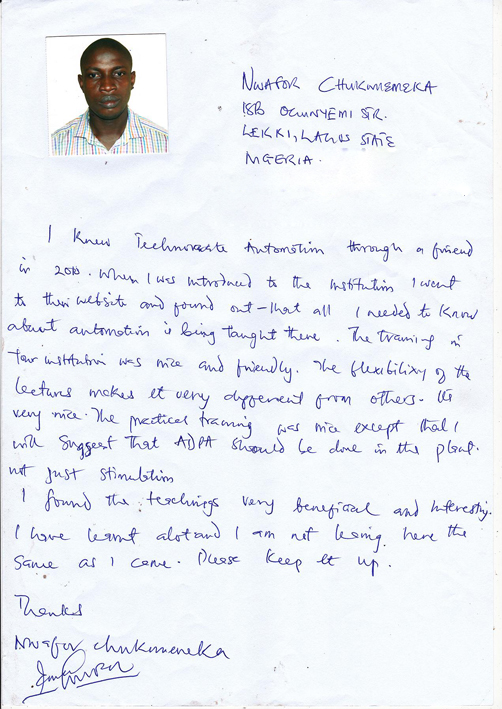 NWAFOR CHUKWUEMEKA
18B OGUNYEMI STR.
LEKKI, LAGOS STATE
NIGERIA.
I knew Technocrate Automotion through a friend
in 2010. When I was introduced to the institution I went
to their website and found out that all I needed to know
about automotion is being taught there. The training in
your institution was nice and friendly. The flexibility of the
lectures makes it very different from others. It's
very nice. The practical training was nice except that I
will suggest that AIDPA should be done in the plant.
not just stimulation
I found the teachings very beneficial and interesting.
I have learnt alot and I am not leaving here the
same as I came. Please keep it up.
Thanks
Nwafor Chukwuemeka